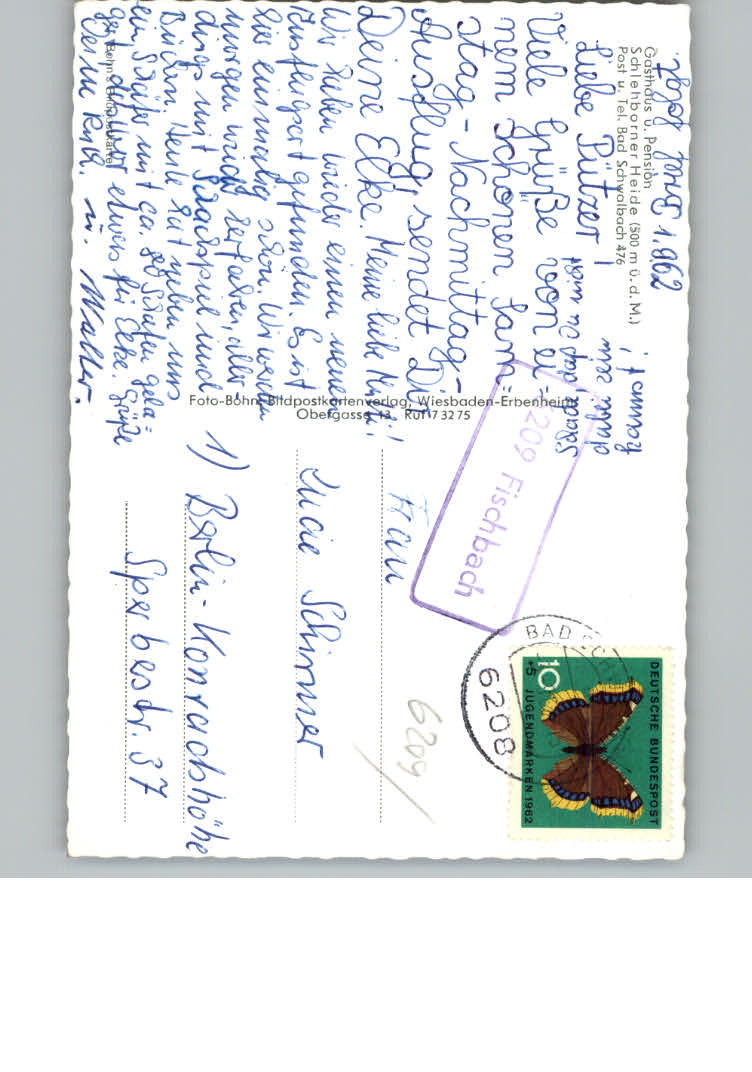 Gasthaus u. Pension
Schlehborner Heide (500 m ü. d. M.)
Post u. Tel. Bad Schwalbach 476
1.962
Liebe Pützer!
Viele Grüße von ei=
nem schönen Sam=
stag-Nachmittag-
Ausflug, sendet Dir
Deine Elke. Meine liebe
Wir haben wieder einen neuen
Ausflugsort gefunden. Es ist
hier einmalig schön. Wir werden
morgen wieder herfahren, aller
dings mit Federballspiel und
Büchern. Heute hat neben uns
ein Schäfer mit ca. 80 Schafen gela=
gert, das war etwas für Elke. Grüße
Deine Ruth. u. Walter.
Foto-Bohn, Bildpostkartenverlag, Wiesbaden-Erbenheim
Obergasse 13, Ruf 7 32 75
6209 Fischbach
Frau
Lucie Schirmer
1) Berlin-Konradshöhe
Sperberstr. 37
6209/
BAD
6208
DEUTSCHE BUNDESPOST
10
+5 JUGENDMARKEN 1962